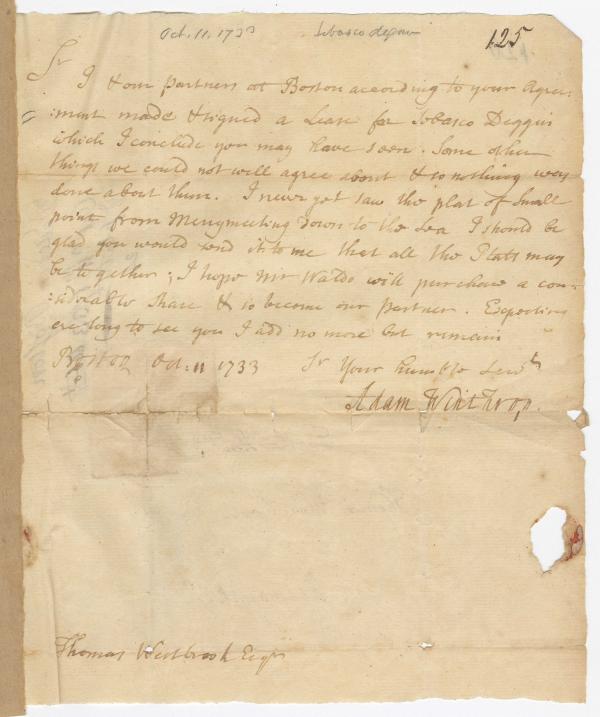 Oct. 11, 1733
125
Sr
I & our Partners at Boston according to your Agree-
:ment made & signed a Lease for Sobasco Deggin
which I conclude you may have seen. Some other
things we could not well agree about & so nothing was
done about them. I never yet saw the plat of Small
point from Merrymeeting down to the Sea I should be
glad you would send it to me that all the Plats may
be together; I hope Mr Waldo will purchase a con-
:siderable Share & so become our Partner. Expecting
ere long to see you I add no more but remain
Boston Oct: 11 1733 Sr Your humble Servt
Adam Winthrop.
Thomas Westbrook Esqr